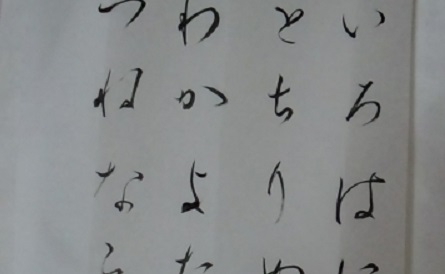 いろはに
とちりぬ
わかよた
つねなら